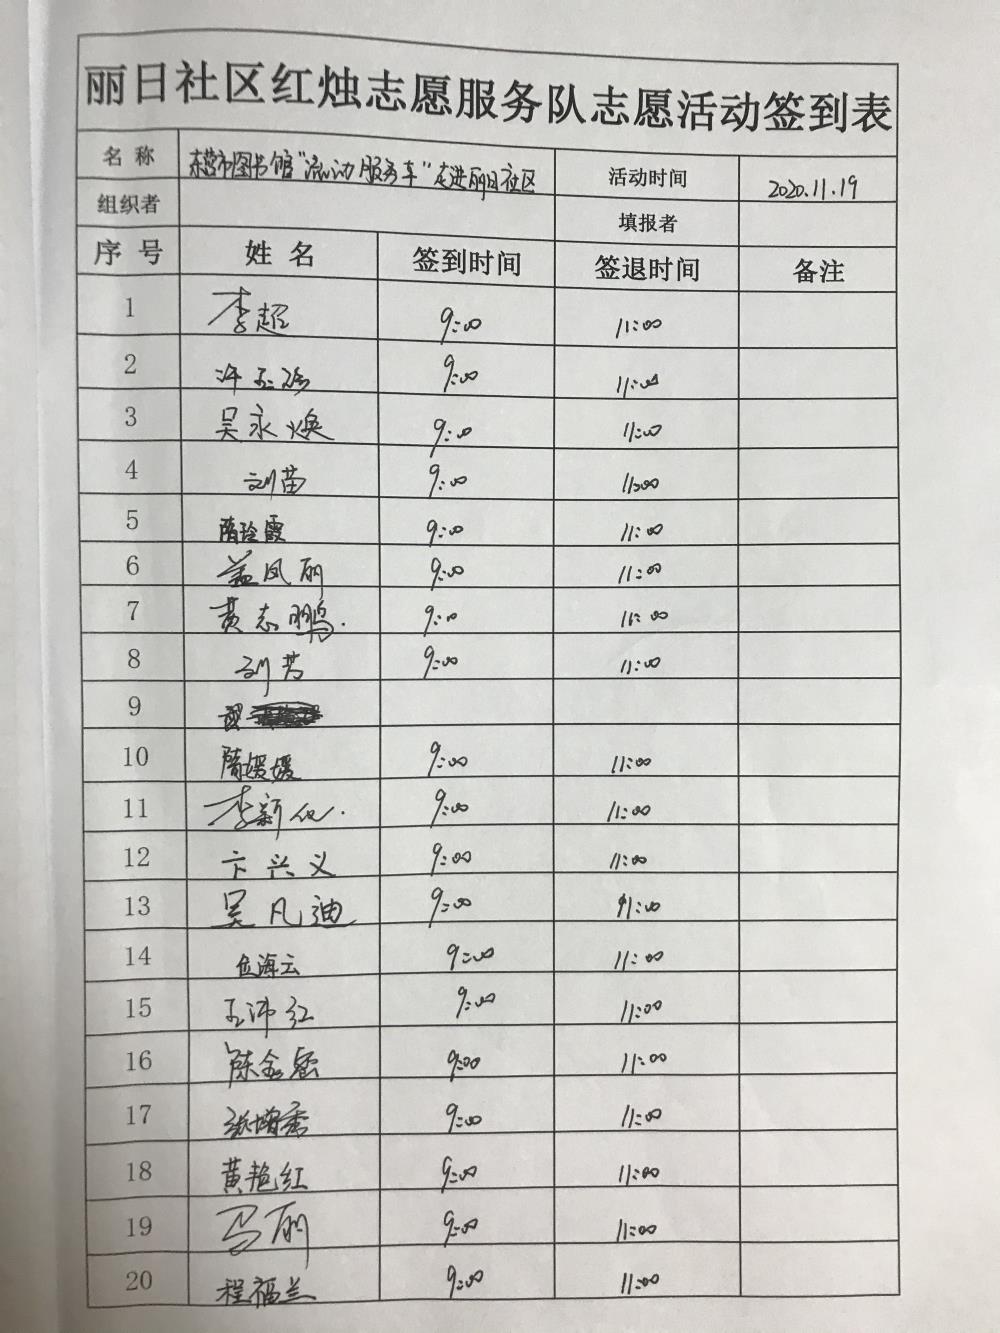 丽日社区红烛志愿服务队志愿活动签到表
名 称 东营市图书馆“流动服务车”走进丽日社区 活动时间 2020.11.19
组织者 填报者
序 号 姓 名 签到时间 签退时间 备注
1 李超 9:00 11:00
2 许玉强 9:00 11:00
3 吴永焕 9:00 11:00
4 刘苗 9:00 11:00
5 隋玲霞 9:00 11:00
6 盖凤丽 9:00 11:00
7 黄志鹏. 9:00 11:00
8 刘芳 9:00 11:00
9
10 隋媛媛 9:00 11:00
11 李新 9:00 11:00
12 卞兴义 9:00 11:00
13 吴凡迪 9:00 11:00
14 海云 9:00 11:00
15 王沛红 9:00 11:00
16 陈金 9:00 11:00
17 张增秀 9:00 11:00
18 黄艳红 9:00 11:00
19 马丽 9:00 11:00
20 程福兰 9:00 11:00